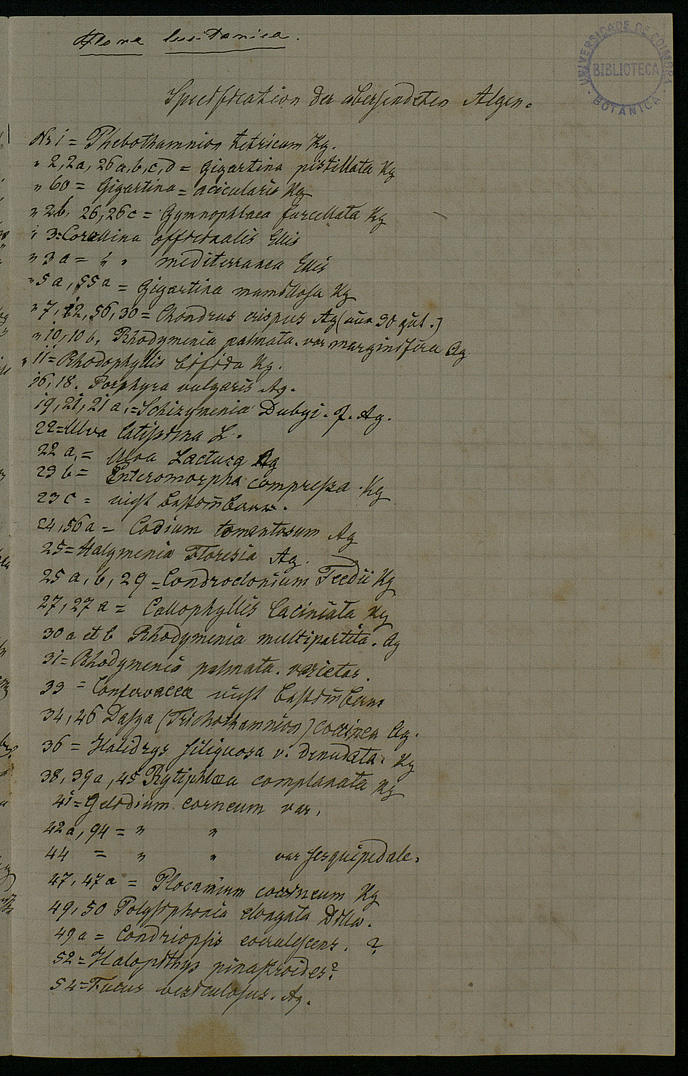 Flora lusitanica.
UNIVERSIDADE DE COIMBRA
BIBLIOTECA
BOTANICA
Specification der übersendeten Algen.
Nr 1 = Phlebothamnion tetricum Kg.
" 2, 2a, 26a, b, c, d = Gigartina pistillata Kg
" 60 = Gigartina = acicularis Kg
" 2b, 26, 26c = Gymnophlaea furcellata Kg
" 3 = Corallina officinalis Ellis
" 3a = " " mediterranea Ellis
" 5a, 55a = Gigartina mamillosa Kg
" 7, 12, 56, 30 = Chondrus crispus Ag
" 10, 10b, Rhodymenia palmata. var marginifera Ag
" 11 = Rhodophyllis bifida Kg.
16, 18. Porphyra vulgaris Ag.
19, 21, 21a, = Schizymenia Dubyi. J. Ag.
22 = Ulva latissima L.
22a, = Ulva Lactuca Ag
23b = Enteromorpha compressa Kg
23c = nicht bestimmbar.
24, 56a = Codium tomentosum Ag
25 = Halymenia Floresia Ag.
25a, b, 29 = Condroclonium Teedii Kg
27, 27a = Callophyllis laciniata Kg
30a et b Rhodymenia multipartita. Ag
31 = Rhodymenia palmata. varietas.
33 = Confervacea nicht bestimmbar
34, 46 Dasya (Trichothamnion) coccinea Ag.
36 = Halidrys siliquosa v. denudata. Kg
38, 39a, 45 Rytiphlaea complanata Kg
41 = Gelidium corneum var.
42a, 94 = " "
44 = " " var sesquipedale.
47, 47a = Plocamium coccineum Kg
49, 50 Polysiphonia elongata Dillw.
49a = Condriopsis coerulescens. ?
52 = Halopithys pinastroides?
54 = Fucus vesiculosus. Ag.